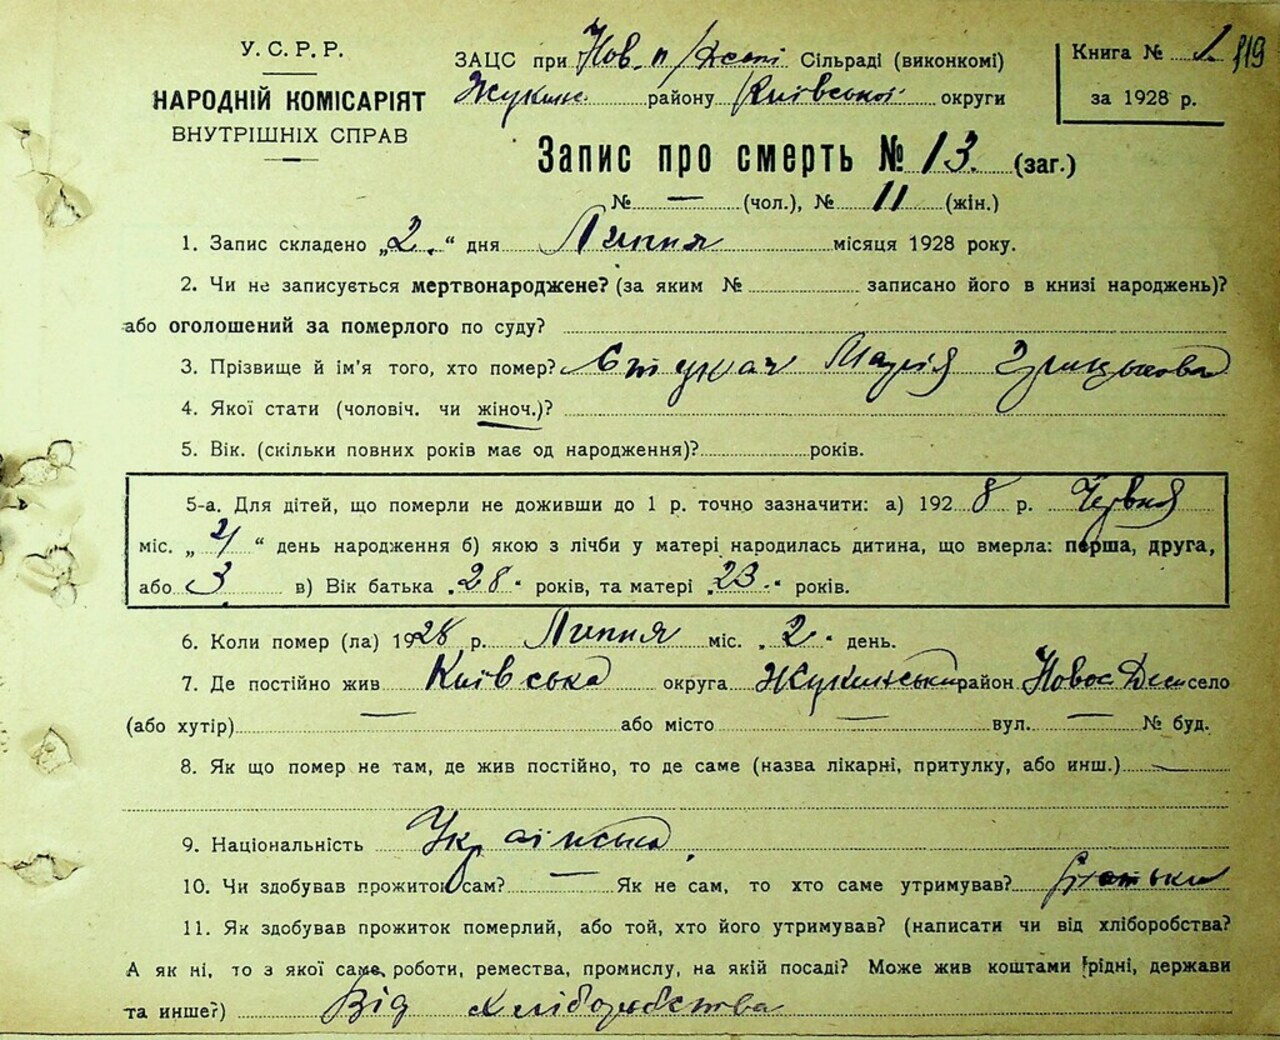 У. С. Р. Р.
НАРОДНІЙ КОМІСАРІЯТ
ВНУТРІШНІХ СПРАВ
ЗАЦС при Нов. п/Десні Сільраді (виконкомі)
Жукин. району Київської округи
Книга № 1 819
за 1928 р.
Запис про смерть № 13. (заг.)
№ — (чол.), № 11 (жін.)
1. Запис складено „2.“ дня Липня місяця 1928 року.
2. Чи не записується мертвонароджене? (за яким № записано його в книзі народжень)?
або оголошений за померлого по суду?
3. Прізвище й ім'я того, хто помер? Марія
4. Якої стати (чоловіч. чи жіноч.)?
5. Вік. (скільки повних років має од народження)? років.
5-а. Для дітей, що померли не доживши до 1 р. точно зазначити: а) 1928 р. Червня
міс. „ “ день народження б) якою з лічби у матері народилась дитина, що вмерла: перша, друга,
або 3. в) Вік батька „28“ років, та матері „23.“ років.
6. Коли помер (ла) 1928 р. Липня міс. „2.“ день.
7. Де постійно жив Київська округа Жукинський район Новос Десн село
(або хутір) — або місто — вул. — № буд.
8. Як що помер не там, де жив постійно, то де саме (назва лікарні, притулку, або инш.) —
9. Національність Українська.
10. Чи здобував прожиток сам? — Як не сам, то хто саме утримував? Батьки
11. Як здобував прожиток померлий, або той, хто його утримував? (написати чи від хліборобства?
А як ні, то з якої саме, роботи, ремества, промислу, на якій посаді? Може жив коштами рідні, держави
та инше?) Від хліборобства